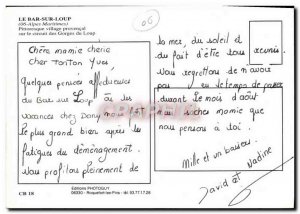 LE BAR-SUR-LOUP
(06-Alpes Maritimes)
Pittoresque village provençal
sur le circuit des Gorges du Loup
06
Chère mamie chérie
cher tonton Yves
Quelques pensées affectueuses
du Bar sur Loup où les
vacances chez Dany nous font
le plus grand bien après les
fatigues du déménagement.
Nous profitons pleinement de
la mer, du soleil et
du fait d'être tous réunis.
Nous regrettons de n'avoir
pas eu le temps de passer
durant le mois d'août
mais saches mamie que
nous pensons à toi.
Mille et un baisers
David et Nadine
CB 18
Editions PHOTOGUY
06330 - Roquefort-les-Pins - tél. 93.77.17.28